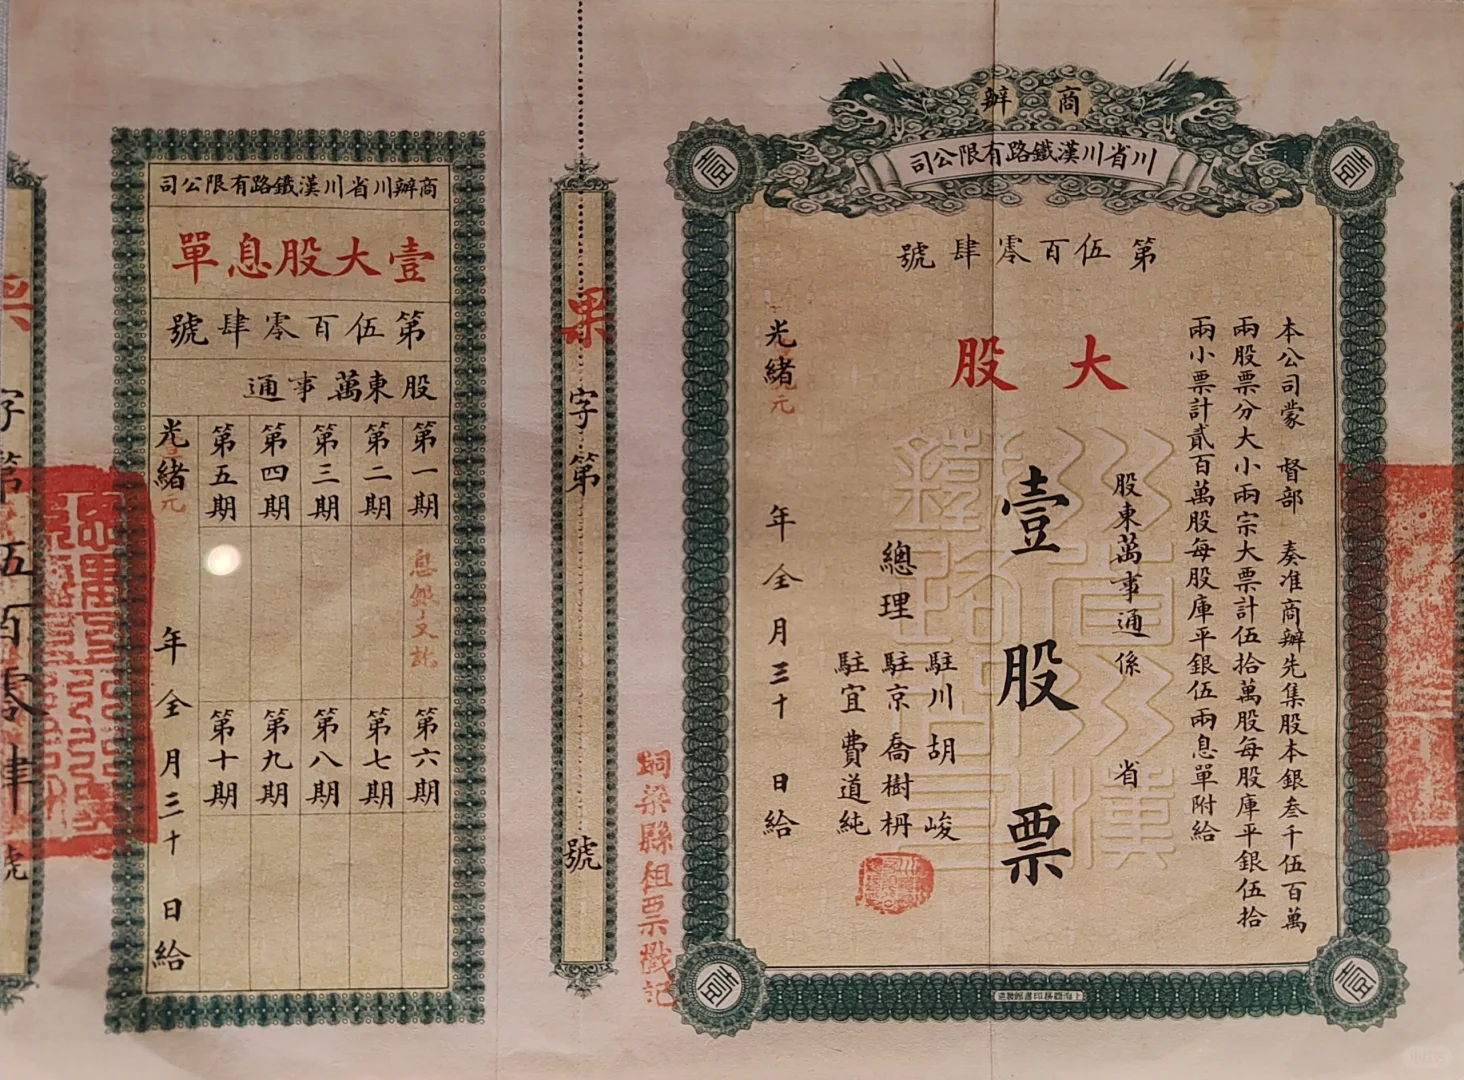 商辦
川省川漢鐵路有限公司
壹
壹
第伍百零肆號
本公司蒙 督部 奏准商辦先集股本銀叁千伍百萬
兩股票分大小兩宗大票計伍拾萬股每股庫平銀伍拾
兩小票計貳百萬股每股庫平銀伍兩息單附給
大股
股東萬事通係 省
壹股票
川省川漢
鐵路公司
總理
駐川胡峻
駐京喬樹枬
駐宜費道純
光緒 年 全 月 三十 日給
元
壹
壹
上海商務印書館製造
銅梁縣租票戳記
票
字第 號
商辦川省川漢鐵路有限公司
壹大股息單
第伍百零肆號
股東萬事通
第一期
第二期
第三期
第四期
第五期
息銀
訖
第六期
第七期
第八期
第九期
第十期
光緒 年 全 月 三十 日給
元
字第伍百零肆號